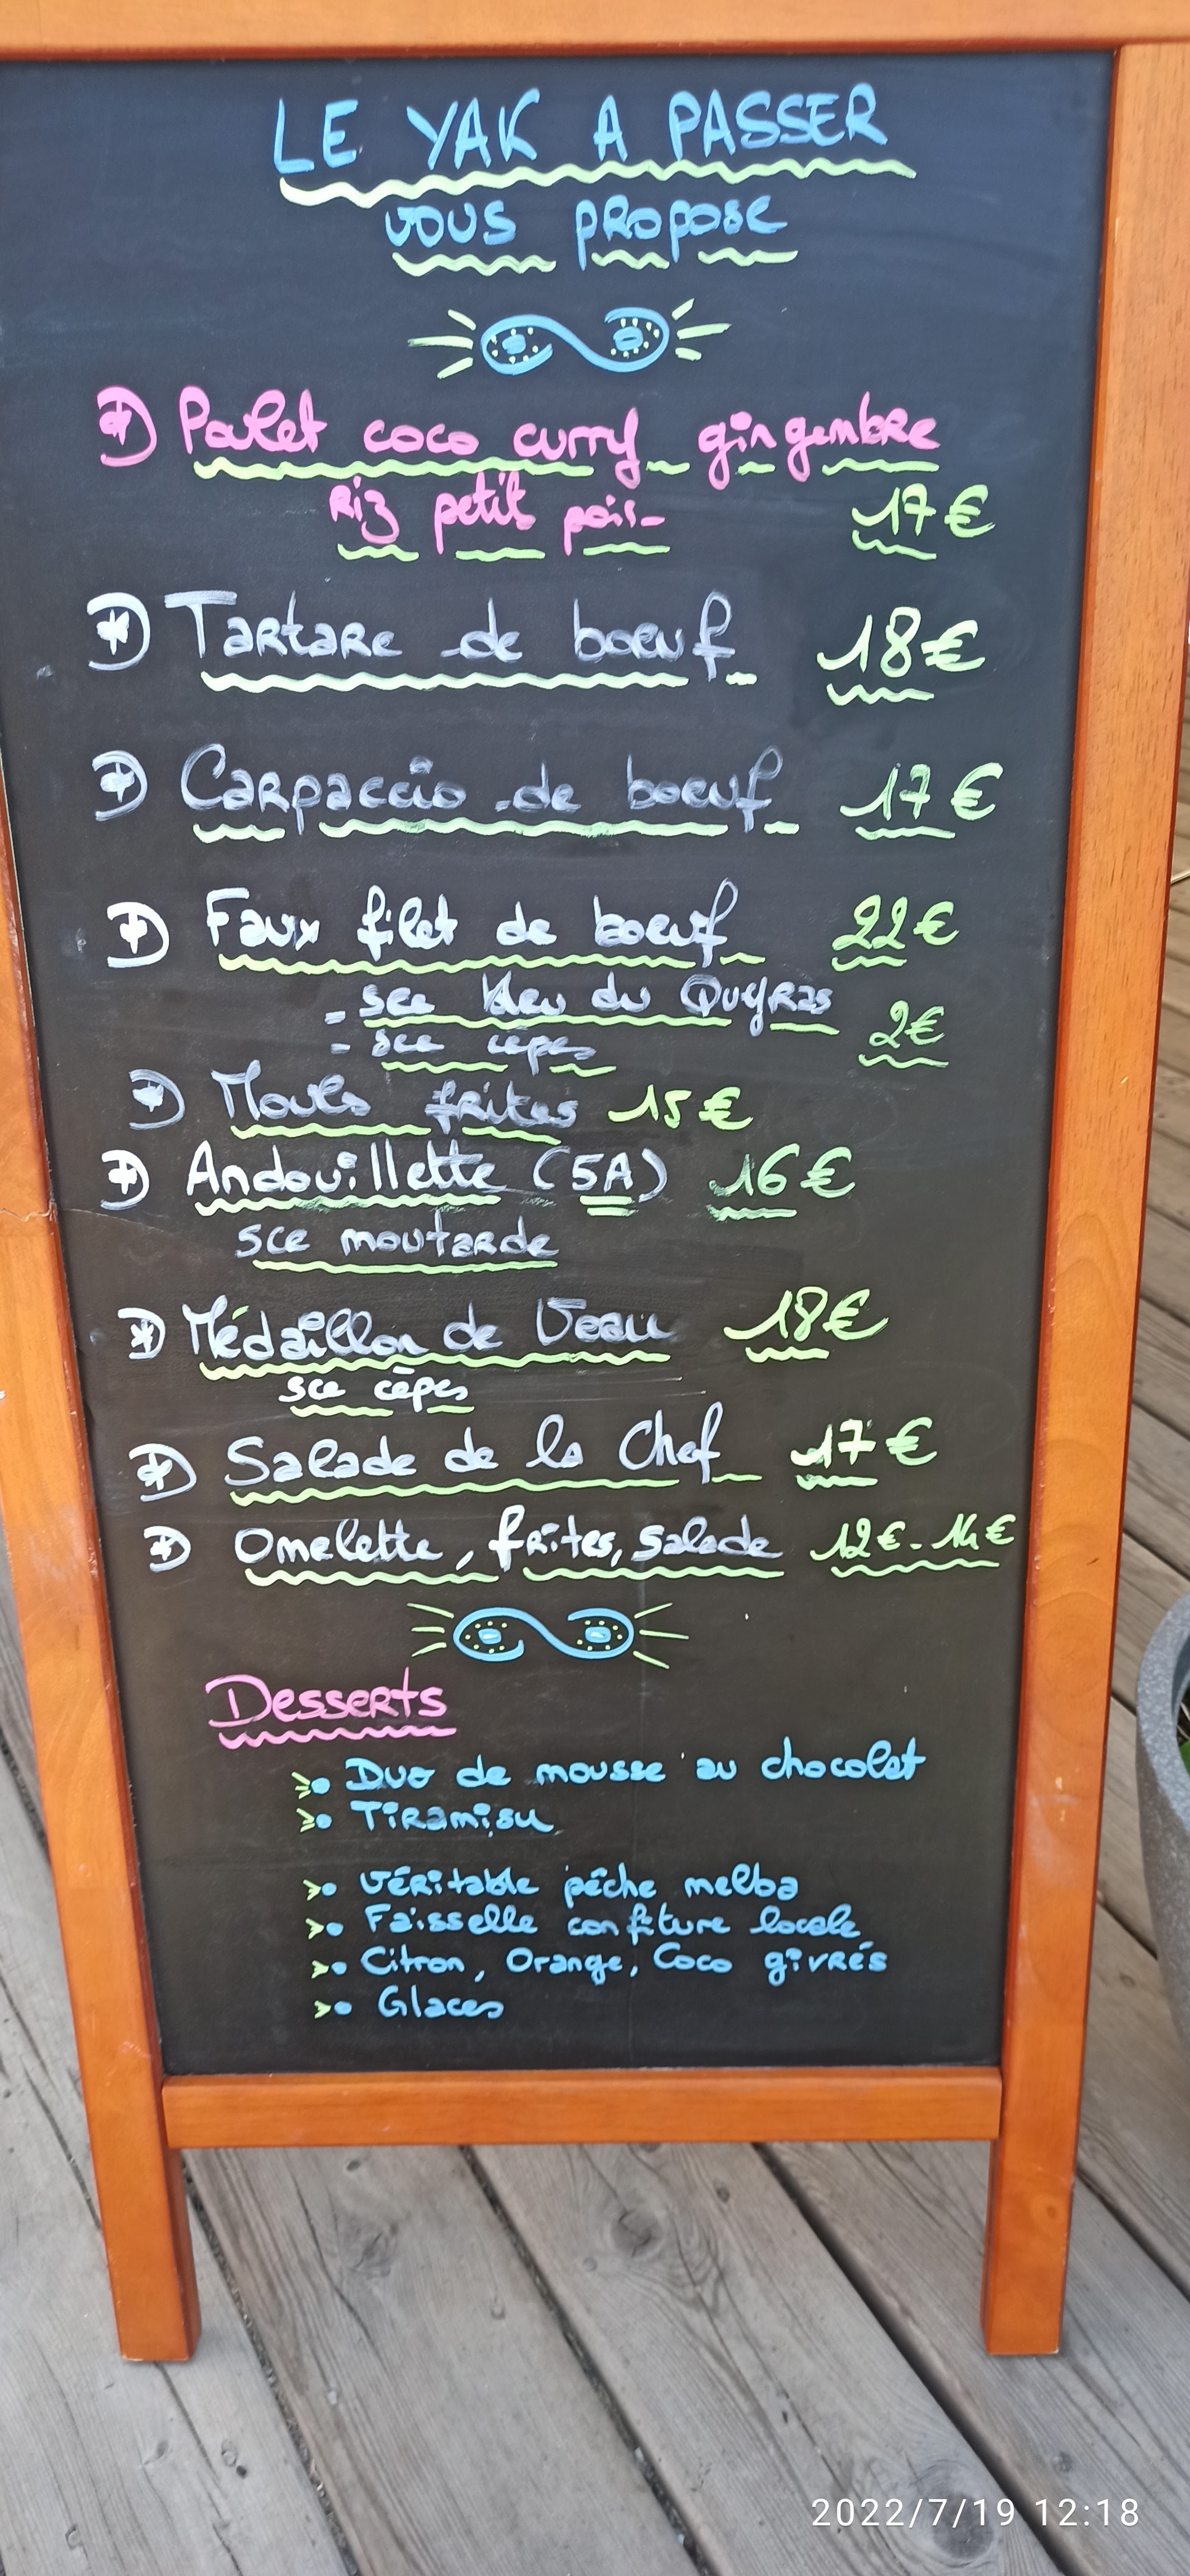 LE YAK A PASSER
VOUS PROPOSE
Poulet coco curry gingembre
Riz petit pois 17€
Tartare de boeuf 18€
Carpaccio de boeuf 17€
Faux filet de boeuf 22€
- sce bleu du Queyras
- sce cèpes 2€
Moules frites 15€
Andouillette (5A) 16€
sce moutarde
Médaillon de Veau 18€
sce cèpes
Salade de la Chef 17€
Omelette, frites, salade 12€ - 14€
Desserts
Duo de mousse au chocolat
Tiramisu
Véritable pêche melba
Faisselle confiture locale
Citron, Orange, Coco givrés
Glaces
2022/7/19 12:18